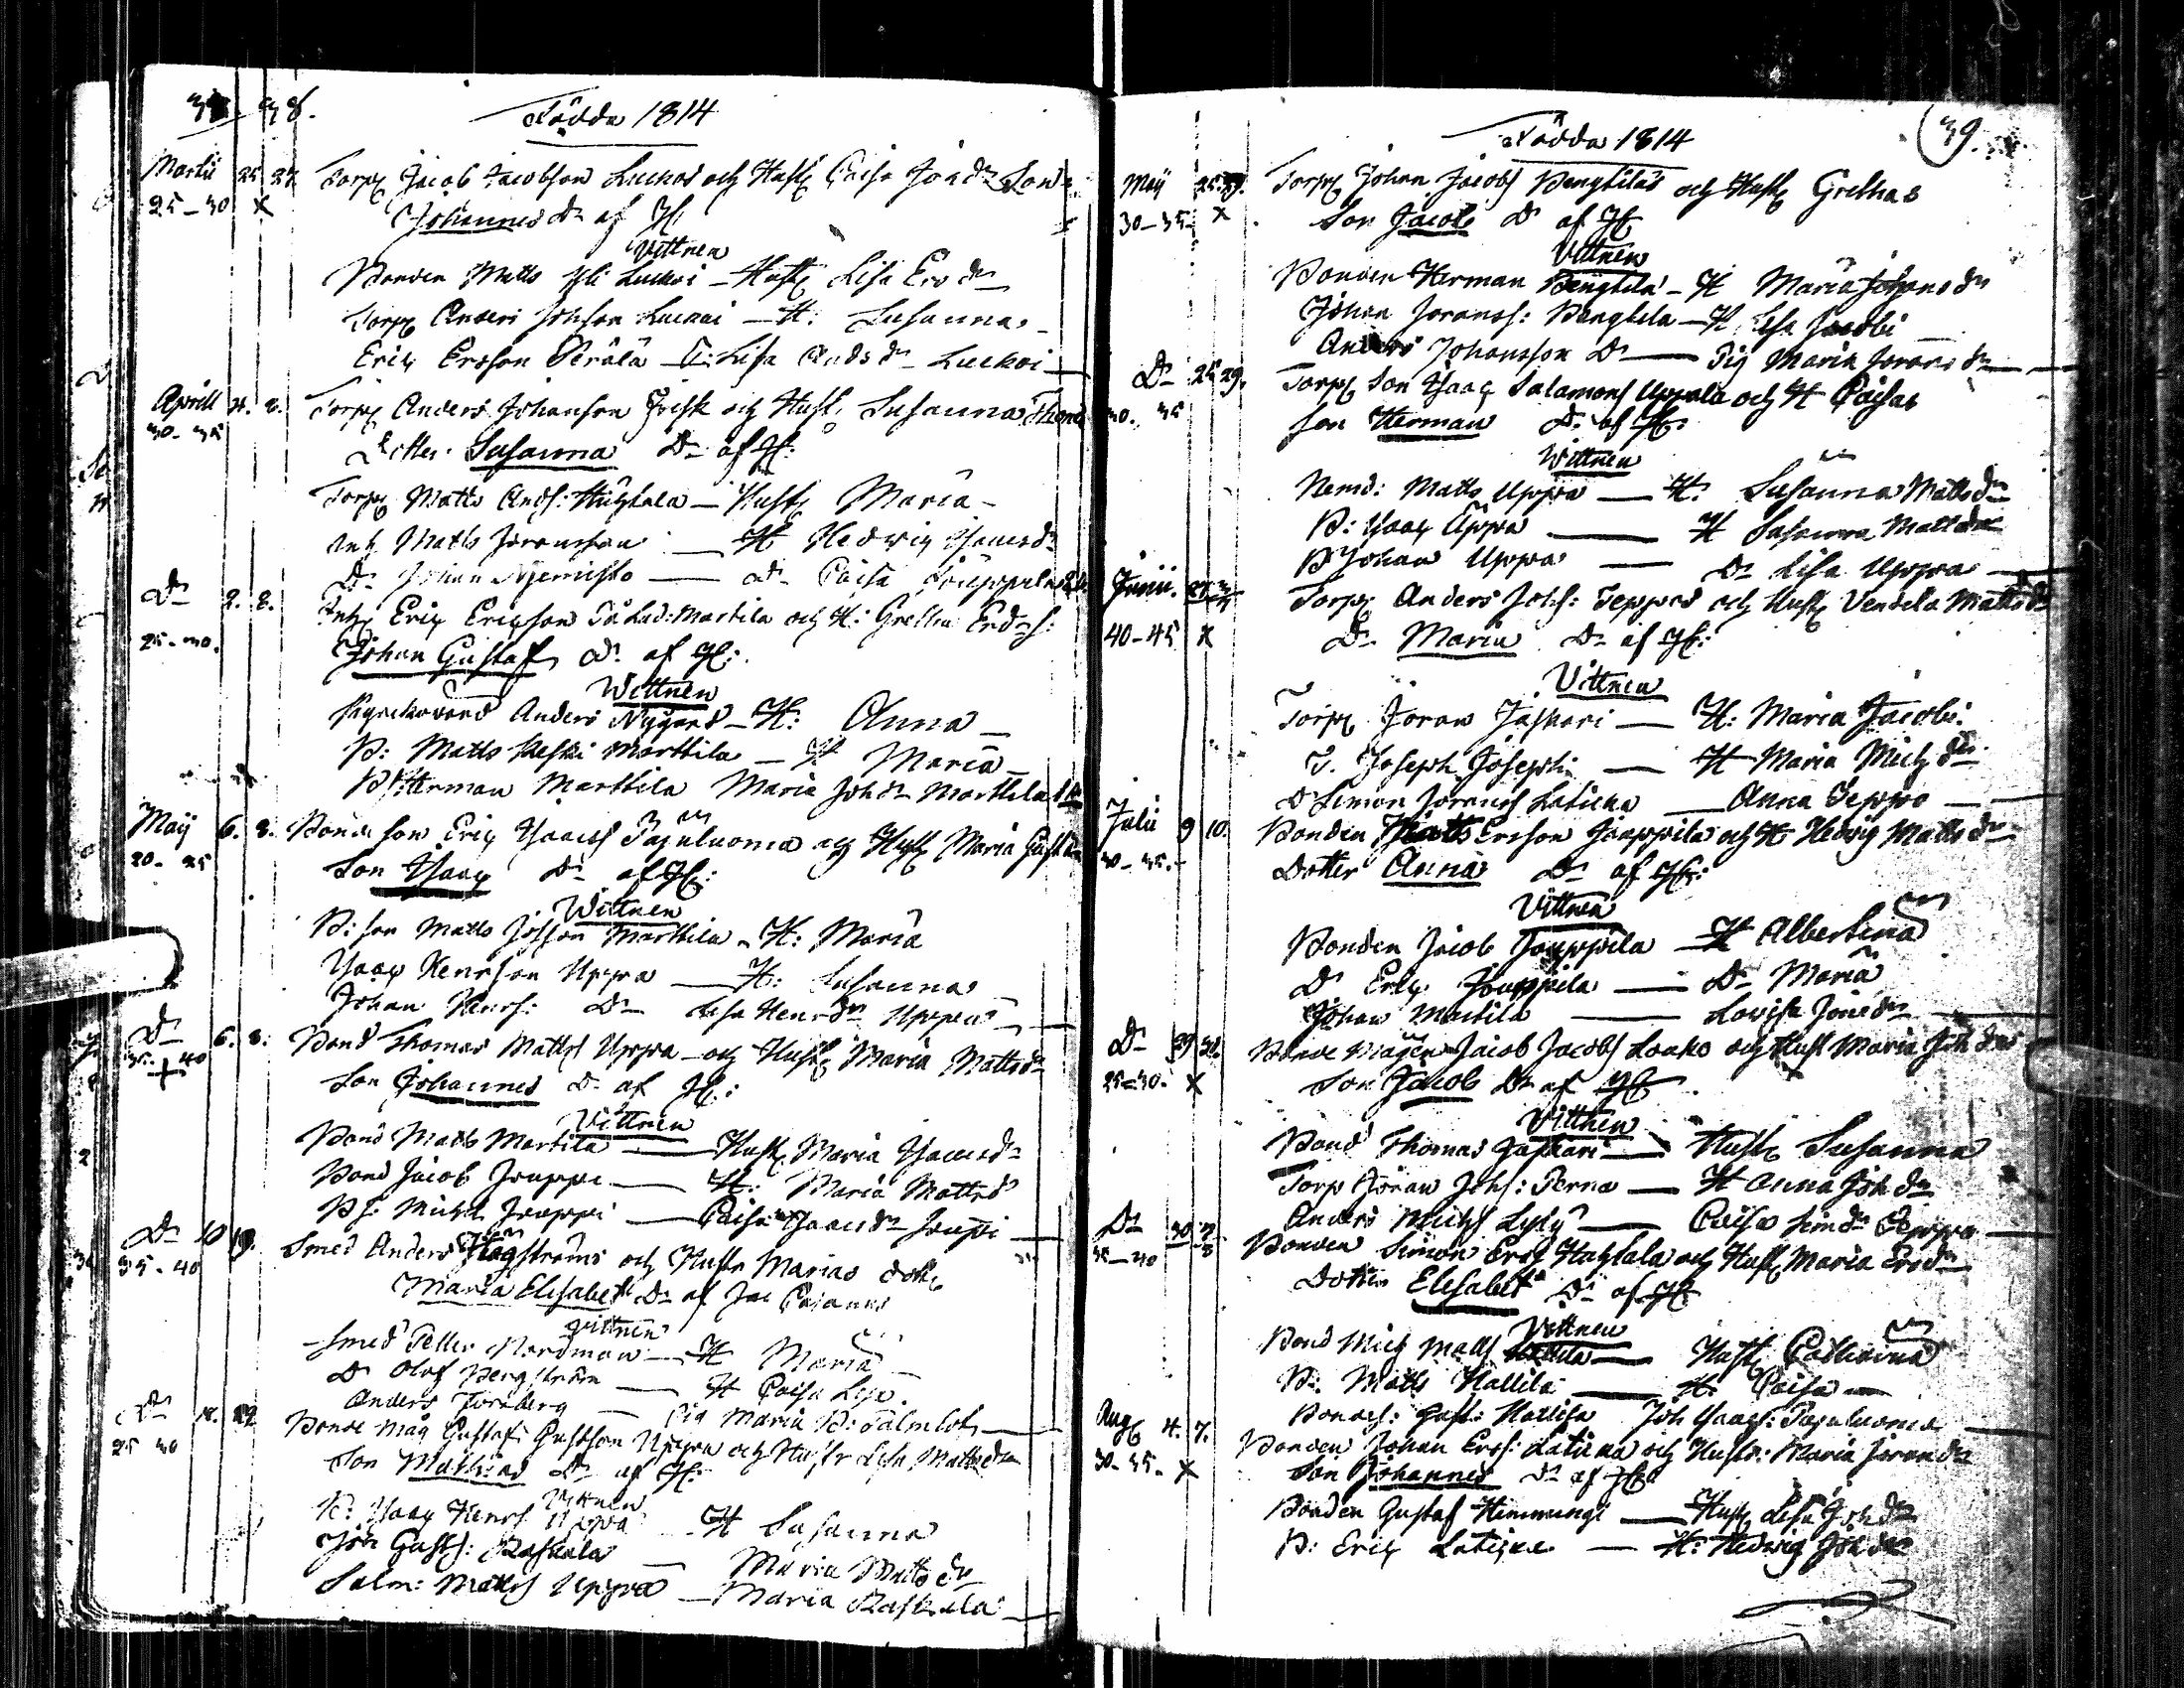 38.
Födda 1814
Martii 25 27 Torp Jacob Jacobson Luckoi och Hust Caisa Joh dr Son
25-30 x Johannes Do af H
Vittnen
Bonden Matts Yli Luckoi - Hust Lisa Ers dr
Torp Anders Johson Luckoi - H: Susanna -
Eric Ersson Perälä - Lisa Ands dr Luckoi
Aprill 8. Torp Anders Johanson Frisk och Hust Susanna
30-35 Dotter Susanna Do af H:
Torp Matts Ands: - Hust Maria -
Inh Matts Joranson - H Hedwig Isacsdr
Do Johan Njemisto - Do Caisa
Do 2. 8. Inh Eric Ericson Martila och H: Gretha
25-30. Johan Gustaf Do af H:
Wittnen
Anders Nygård - H: Anna -
B: Matts Keski Marttila - H Maria -
B: Herman Marttila Maria Joh dr Marttila
Maÿ 6. 8. Bonde son Eric Isacss Pajuluoma och Hust Maria
20-25 Son Isaac Do af H:
Wittnen
B: son Matts Johson Marttila - H: Maria
Isaac Henrson Uppa - H: Susanna
Johan Henrs: Do Lisa Henrsdr Uppa -
Do 6. 8. Bond Thomas Matts Uppa - och Hust Maria Mattsdr
35-40 + Son Johannes Do af H:
Vittnen
Bond Matts Martila - Hust Maria Isacsdr
Bond Jacob Jouppi - H: Maria Mattsdr
Bs: Michel Jouppi - Caisa Isacsdr Joupi
Do 10 19. Smed Anders Hägströms och Hustr Marias dott
35-40 Maria Elisabet Do af
Vittnen
Smed Petter Nordman - H Maria
Do Olof Bergström - H Caisa Lise.
Anders Fornberg - Pig Maria B: Palmlöf
Do 18. 22 Bonde måg Gustaf Gustson Uppa och Hustr Lisa Mattsdr
25 30 Son Mathias Do af H:
Vittnen
B: Isaac Henrs Uppa - H Susanna
Joh Gusts: Raskala - Maria Matts dr
Salm: Matts Uppa - Maria Raskala
39.
Födda 1814
Maÿ 25 29. Torp Johan Jacobs Pengkilas och Hust Grethas
30-35- x Son Jacob Do af H
Vittnen
Bonden Herman Bengtila - H Maria Johans dr
Johan Joranss: Bengtila - H Lisa Jacobi -
Anders Johansson Do - Pig Maria Jorans dr -
Do 25 29. Torp Son Isaac Salamons Uppala och H Caisas
30. 35 son Herman Do af H:
Wittnen
Nemd: Matts Uppa - H: Susanna Mattsdr
B: Isaac Uppa - H Susanna Mattsdr
B Johan Uppa - Do Lisa Uppa -
Junii. Torp Anders Johs: Teppos och Hust Vendela Mattsdr
40-45 x Dr Maria Do af H:
Vittnen
Torp Joran Jaskari - H: Maria Jacobi.
T. Joseph Josephi - H Maria Mich dr
D Simon Jorans Laticka - Anna Seppo -
Julii 9 10. Bonden Matts Ersson Jouppila och H Hedvig Matts dr
30-35.- Dotter Anna Do af H:
Vittnen
Bonden Jacob Jouppila - H Albertina
Do Eric Jouppila - Do Maria
Johan Martila - Lovisa Jons dr
Do 29 Bonde Mågen Jacob Jacobs Loako och Hust Maria Joh drs
25-30. x Son Jacob Do af H
Vittnen
Bond Thomas Jaskari - Hust Susanna
Torp Joran Johs: Perna - H Anna Joh dr
Anders Michs Lyly - Caisa Sim dr Seppo
Do 30 Bonden Simon Ers och Hust Maria Ersdr
35-40 Dotter Elisabet Do af H
Vittnen
Bond Mich Matts - Hust Catharina
B: Matts Hallila - H: Caisa -
Bondes: Gust: Hallila Joh Isacs: Pajuluoma
Aug 4. 7. Bonden Johan Ers: Laticka och Hustr: Maria Joran dr
30-35- x Son Johannes Do af H:
Bonden Gustaf Hemmingi - Hust Lisa Joh dr
B: Eric Laticka - H: Hedwig Joh dr